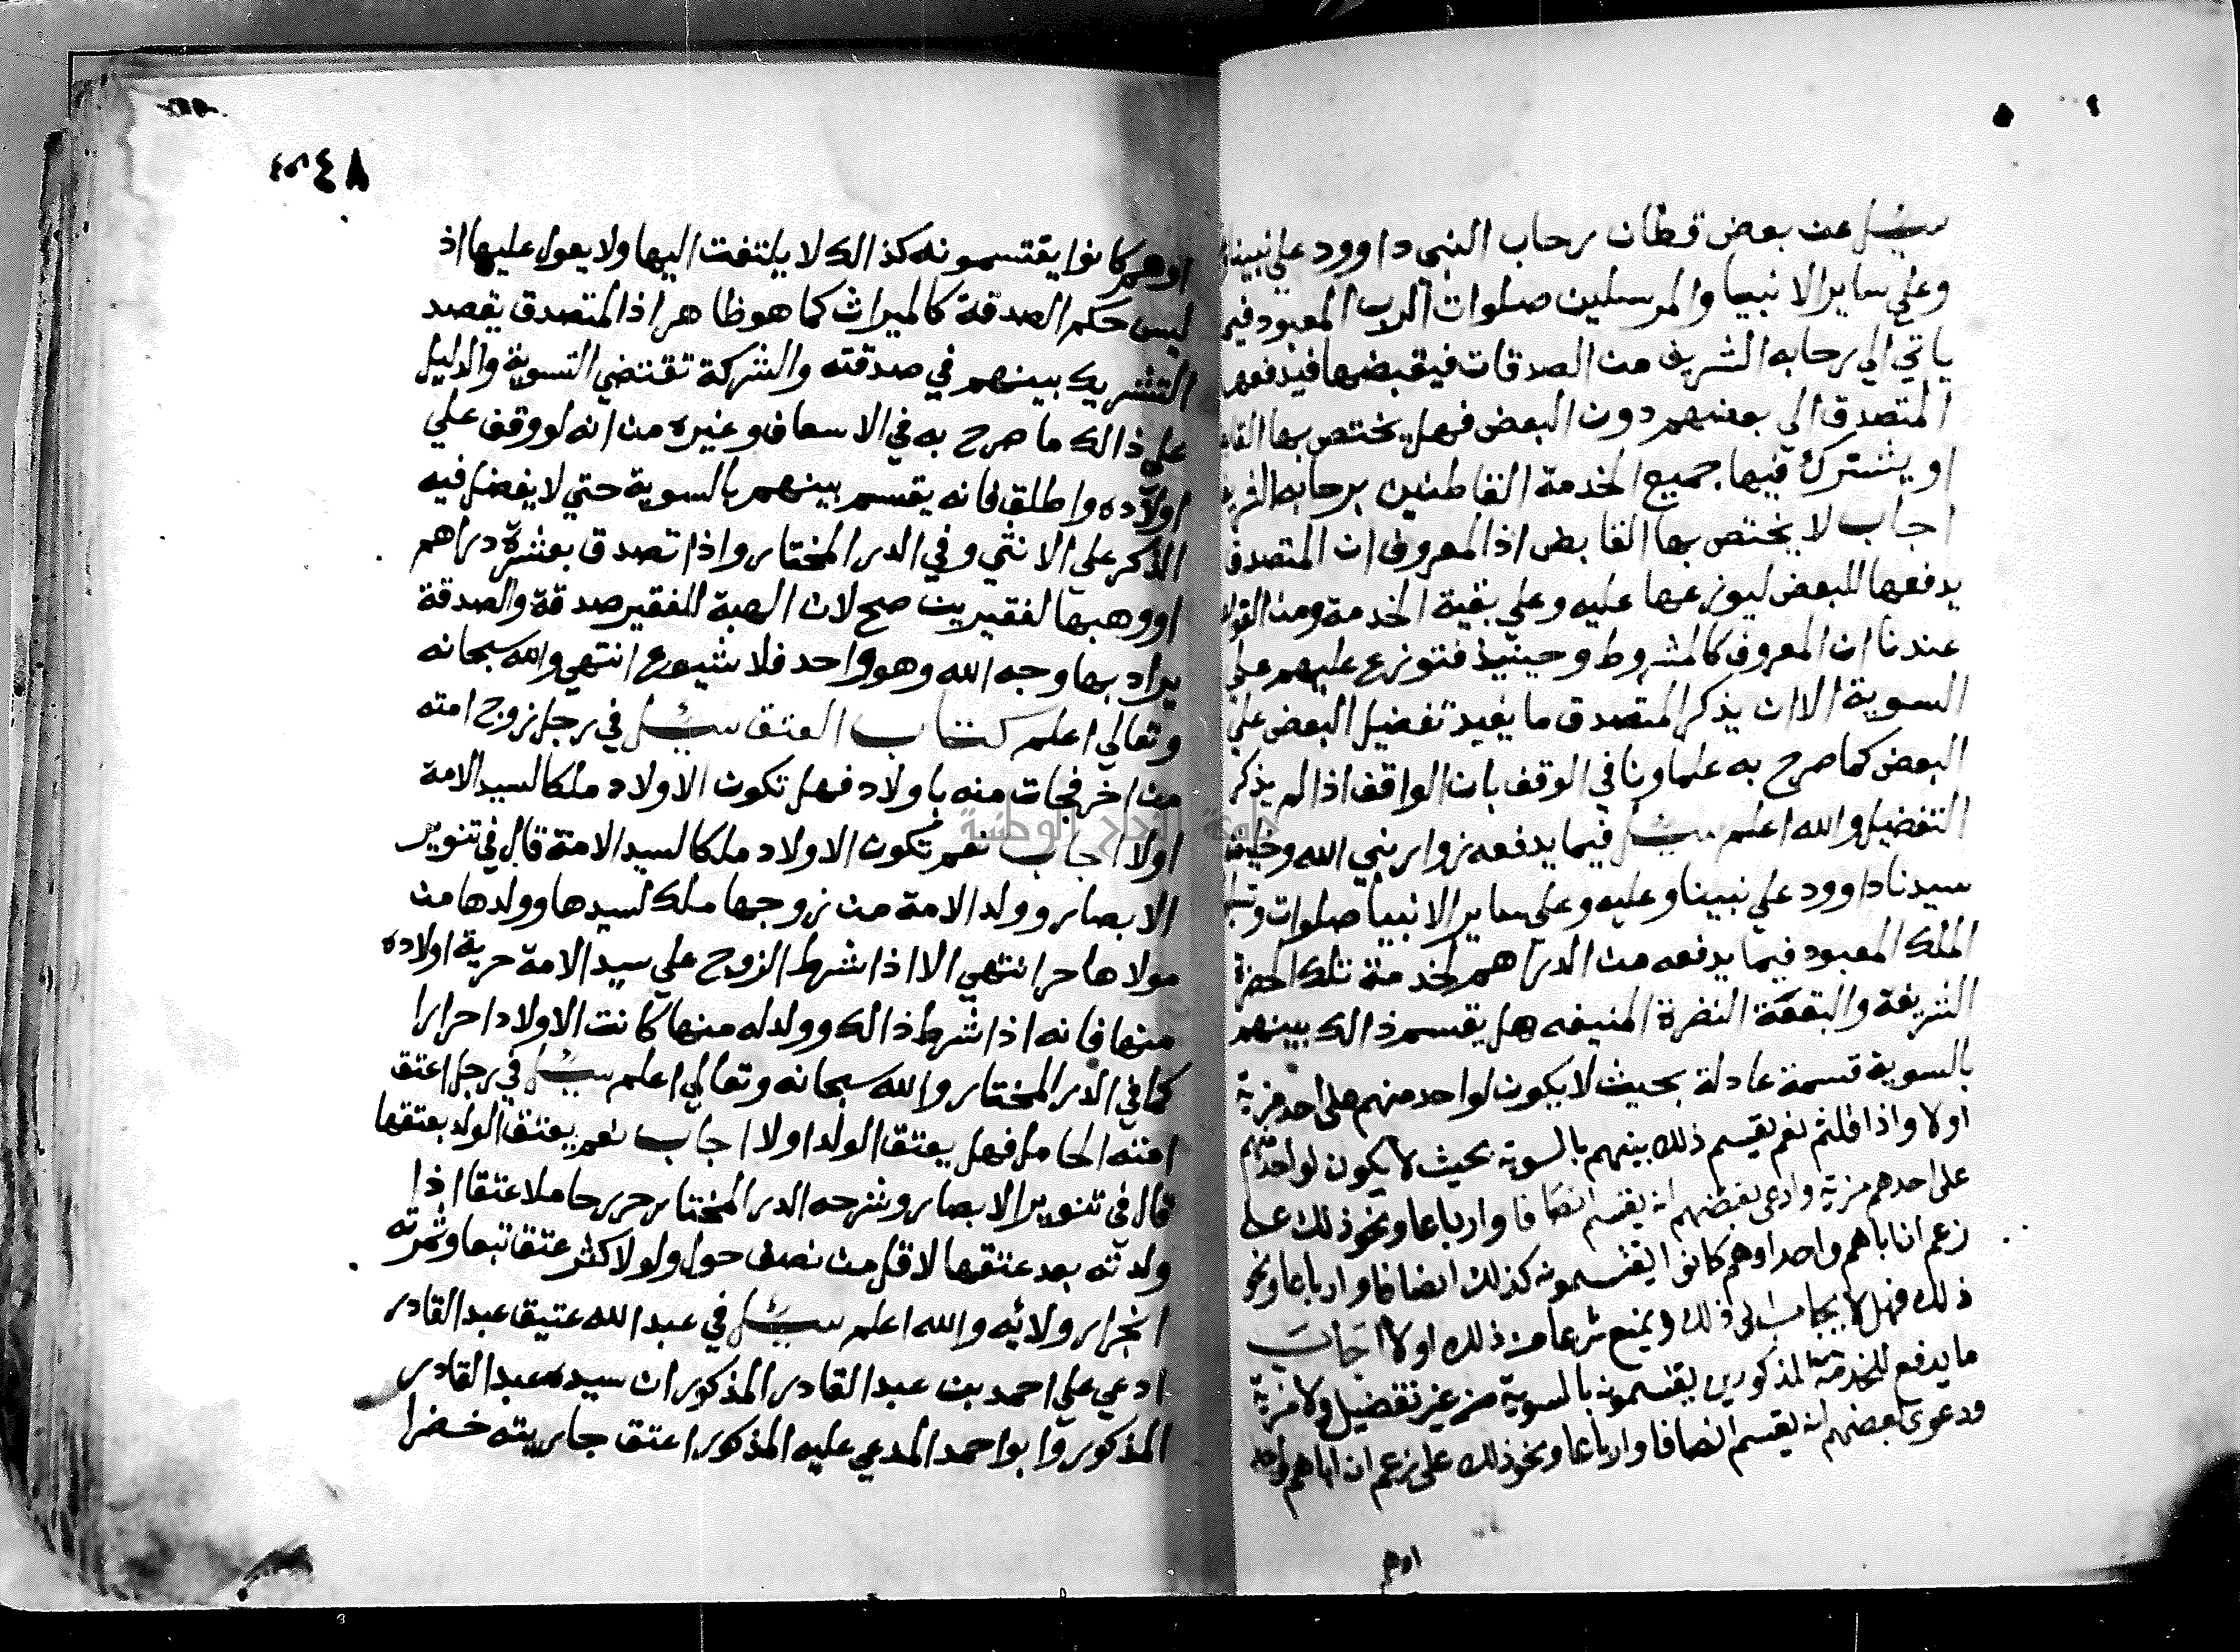 سئل عن بعض قطان رحاب النبي داوود علي نبينا
وعلي ساير الانبيا والمرسلين صلوات الرب المعبود فيما
ياتي الي رحابه الشريف من الصدقات فيقبضها فيدفعها
المتصدق الي بعضهم دون البعض فهل يختص بها
او يشترك فيها جميع الخدمة القاطنين برحابه
اجاب لا يختص بها القابض اذ المعروف ان المتصدق
يدفعها للبعض ليوزعها عليه وعلي بقية الخدمة ومن
عندنا ان المعروف كالمشروط وحينيذ فتوزع عليهم علي
السوية الا ان يذكر المتصدق ما يفيد تفضيل البعض علي
البعض كما صرح به علماونا في الوقف بان الواقف اذا لم يذكر
التفضيل والله اعلم سئل فيما يدفعه زوار نبي الله وخليفته
سيدنا داوود علي نبينا وعليه وعلي ساير الانبيا صلوات
الملك المعبود فيما يدفعه من الدراهم لخدمة تلك الحضرة
الشريفة والبقعة النضرة المنيفه هل يقسم ذالك بينهم
بالسوية قسمة عادلة بحيث لا يكون لواحد منهم على احد مزية
اولا واذا قلتم نعم يقسم ذلك بينهم بالسوية بحيث لا يكون لواحد منهم
على احدهم مزية وادعى بعضهم انه يقسم انصافا وارباعا ونحو ذلك على
زعم ان اباهم واحد اوهم كانوا يقتسمونه كذلك انصافا وارباعا ونحو
ذلك فهل لا يجاب الى ذلك ويمنع شرعا من ذلك اولا اجاب
ما يدفع للخدمة المذكورين يقتسمونه بالسوية من غير تفضيل ولا مزية
ودعوى بعضهم انه يقسم انصافا وارباعا ونحو ذلك على زعم ان اباهم واحد
اوهم
٤٨
اوهم كانوا يقتسمونه كذالك لا يلتفت اليها ولا يعول عليها اذ
ليس حكم الصدقة كالميراث كما هو ظاهر اذ المتصدق يقصد
التشريك بينهم في صدقته والشركة تقتضي التسوية والدليل
علي ذالك ما صرح به في الاسعاف وغيره من انه لو وقف علي
اولاده واطلق فانه يقسم بينهم بالسوية حتي لا يفضل فيه
الذكر علي الانثي وفي الدر المختار واذا تصدق بعشرة دراهم
او وهبها لفقيرين صح لان الهبة للفقير صدقة والصدقة
يراد بها وجه الله وهو واحد فلا شيوع انتهي والله سبحانه
وتعالي اعلم كتاب العتق سئل في رجل زوج امته
من اخر فجات منه باولاد فهل تكون الاولاد ملكا لسيد الامة
اولا اجاب نعم تكون الاولاد ملكا لسيد الامة قال في تنوير
الابصار وولد الامة من زوجها ملك لسيدها وولدها من
مولاها حر انتهي الا اذا شرط الزوج علي سيد الامة حرية اولاده
منها فانه اذا شرط ذالك وولد له منها كانت الاولاد احرارا
كما في الدر المختار والله سبحانه وتعالي اعلم سئل في رجل اعتق
امته الحامل فهل يعتق الولد اولا اجاب نعم يعتق الولد بعتقها
قال في تنوير الابصار وشرحه الدر المختار حرر حاملا عتقا اذا
ولدته بعد عتقها لاقل من نصف حول ولو لاكثر عتق تبعا وثمرته
انجرار ولائه والله اعلم سئل في عبد الله عتيق عبد القادر
ادعي علي احمد بن عبد القادر المذكور ان سيده عبد القادر
المذكور وابو احمد المدعي عليه المذكور اعتق جاريته خضرا
جامعة النجاح الوطنية